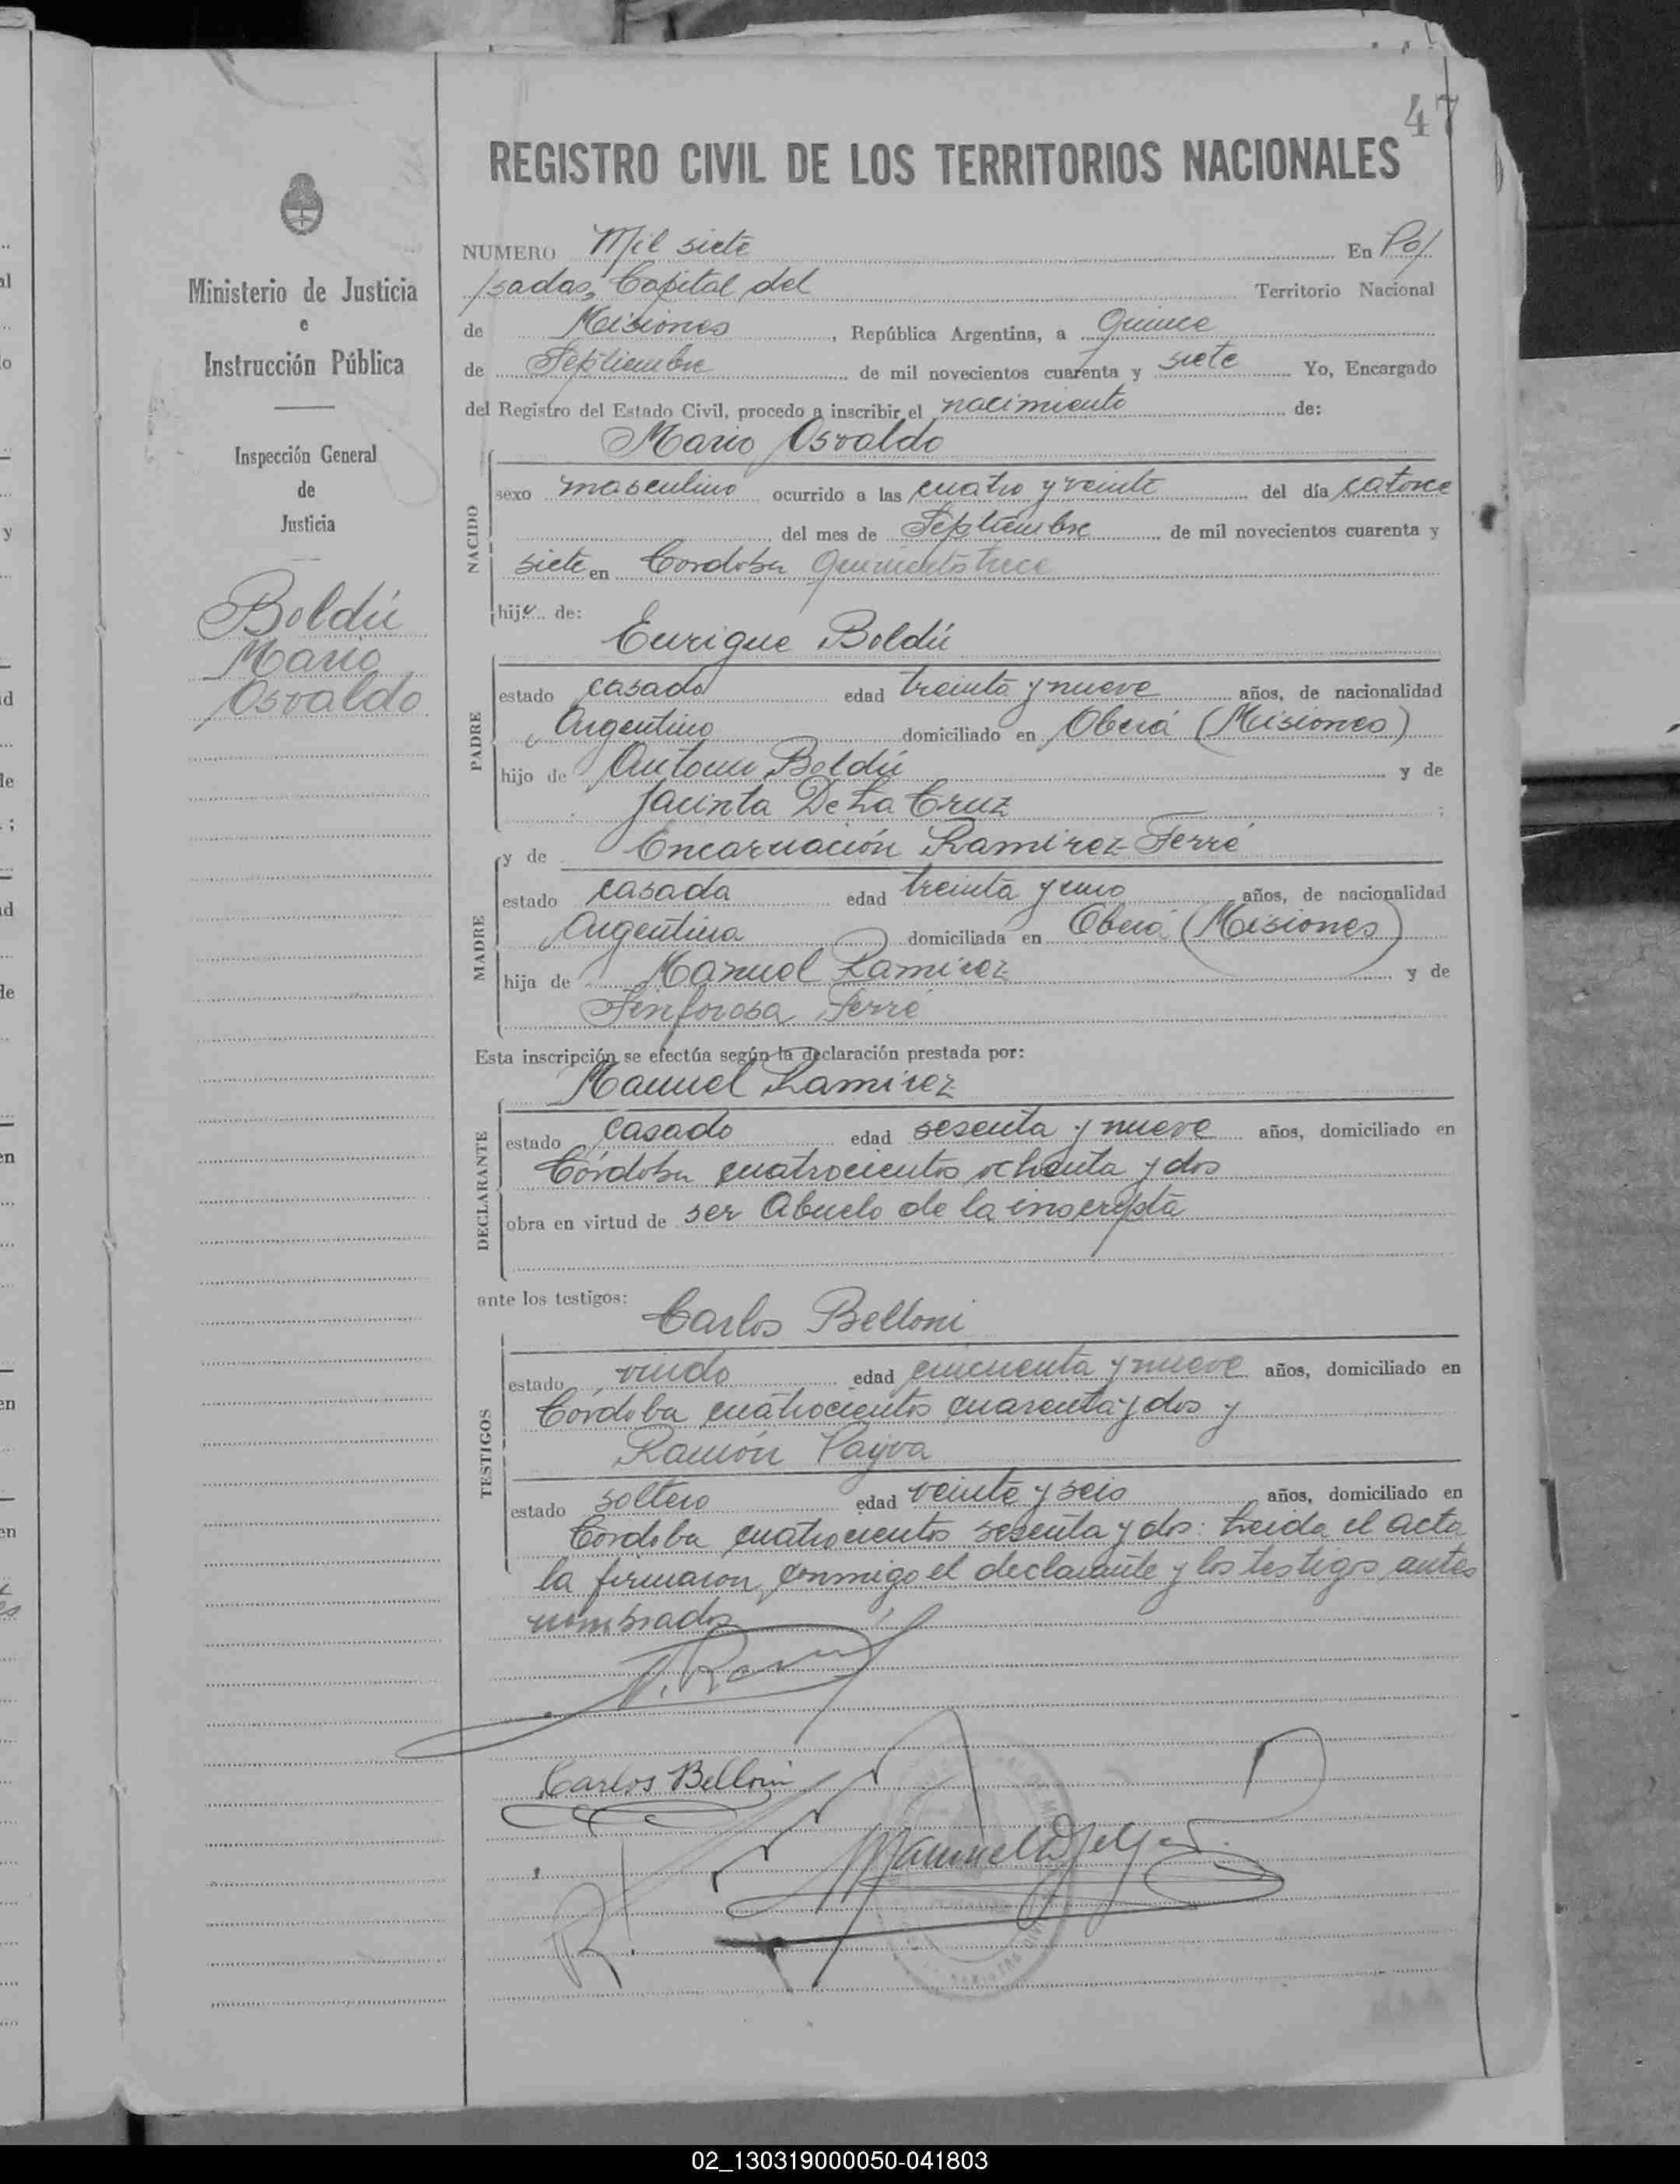 47
REGISTRO CIVIL DE LOS TERRITORIOS NACIONALES
Ministerio de Justicia
e
Instrucción Pública
Inspección General
de
Justicia
Boldú
Mario
Osvaldo
NUMERO Mil siete En Po/
/sadas, Capital del Territorio Nacional
de Misiones, República Argentina, a Quince
de Septiembre de mil novecientos cuarenta y siete Yo, Encargado
del Registro del Estado Civil, procedo a inscribir el nacimiento de:
Mario Osvaldo
NACIDO
sexo masculino ocurrido a las cuatro y veinte del día catorce
del mes de Septiembre de mil novecientos cuarenta y
siete en Cordoba Quinientos trece
hijo de:
Enrique Boldú
PADRE
estado casado edad treinta y nueve años, de nacionalidad
Argentino domiciliado en Oberá (Misiones)
hijo de Antonio Boldú y de
Jacinta De La Cruz
y de Encarnación Ramirez Ferré
MADRE
estado casada edad treinta y uno años, de nacionalidad
Argentina domiciliada en Oberá (Misiones)
hija de Manuel Ramirez y de
Senforosa Ferré
Esta inscripción se efectúa según la declaración prestada por:
Manuel Ramirez
DECLARANTE
estado casado edad sesenta y nueve años, domiciliado en
Córdoba cuatrocientos ochenta y dos
obra en virtud de ser Abuelo de la inscripta
ante los testigos:
Carlos Belloni
TESTIGOS
estado viudo edad cincuenta y nueve años, domiciliado en
Córdoba cuatrocientos cuarenta y dos y
Ramón Payva
estado soltero edad veinte y seis años, domiciliado en
Cordoba cuatrocientos sesenta y dos: Leida el acta
la firmaron conmigo el declarante y los testigos antes
nombrados
Carlos Belloni
02_130319000050-041803